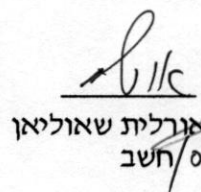 אורלית שאוליאן
ס/חשב